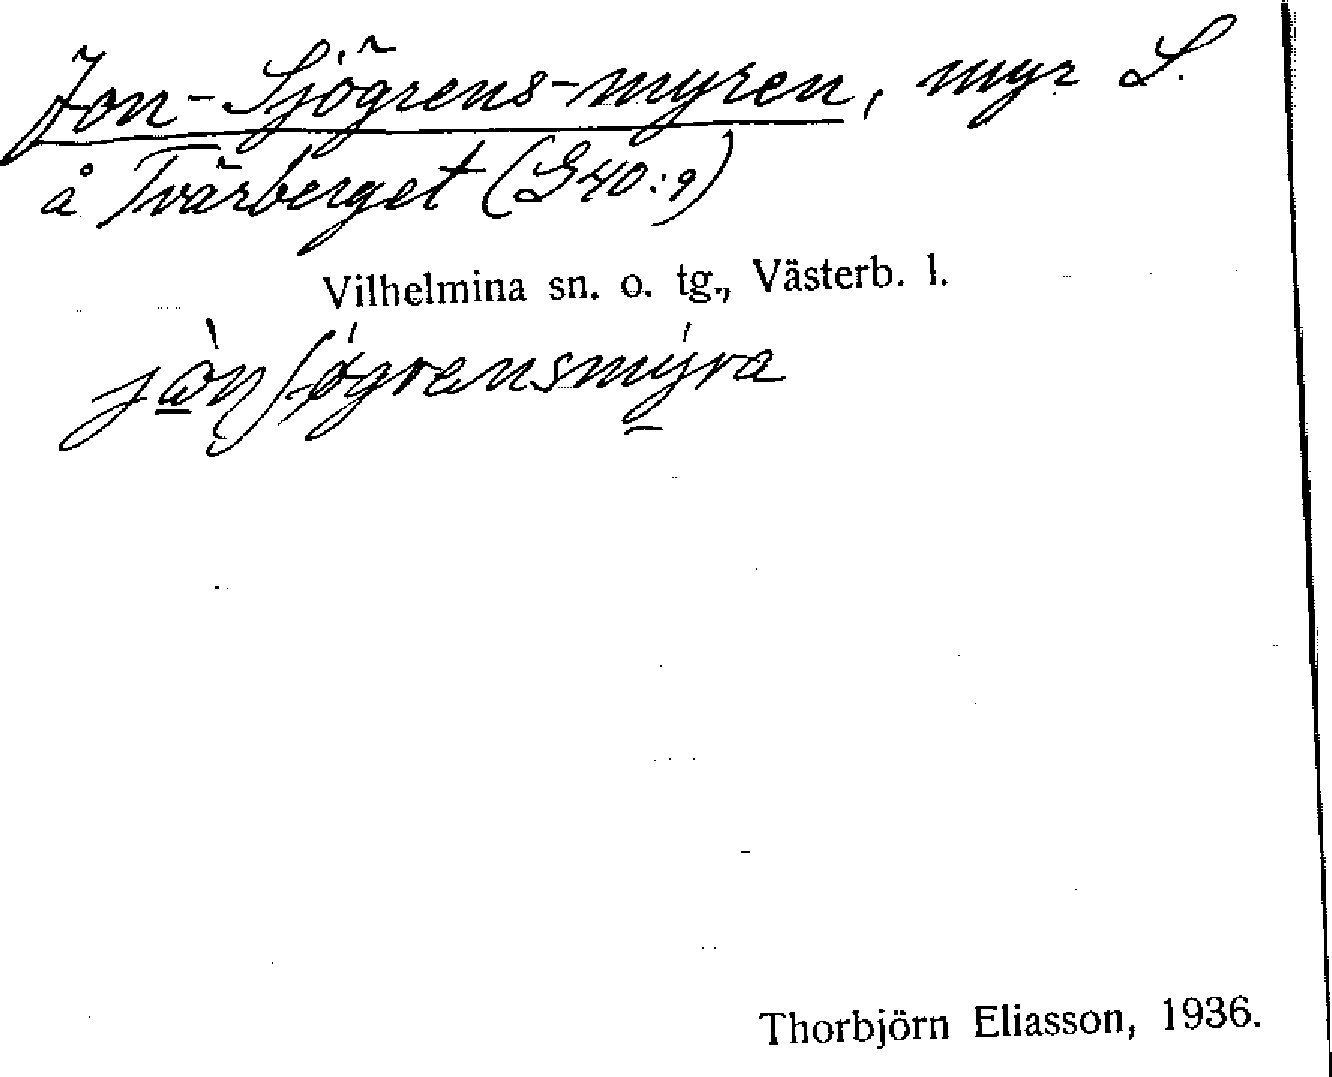 Jon-Sjögrens-myren, myr S.
å Tvärberget (G40:9)
Vilhelmina sn. o. tg., Västerb. l.
Thorbjörn Eliasson, 1936.